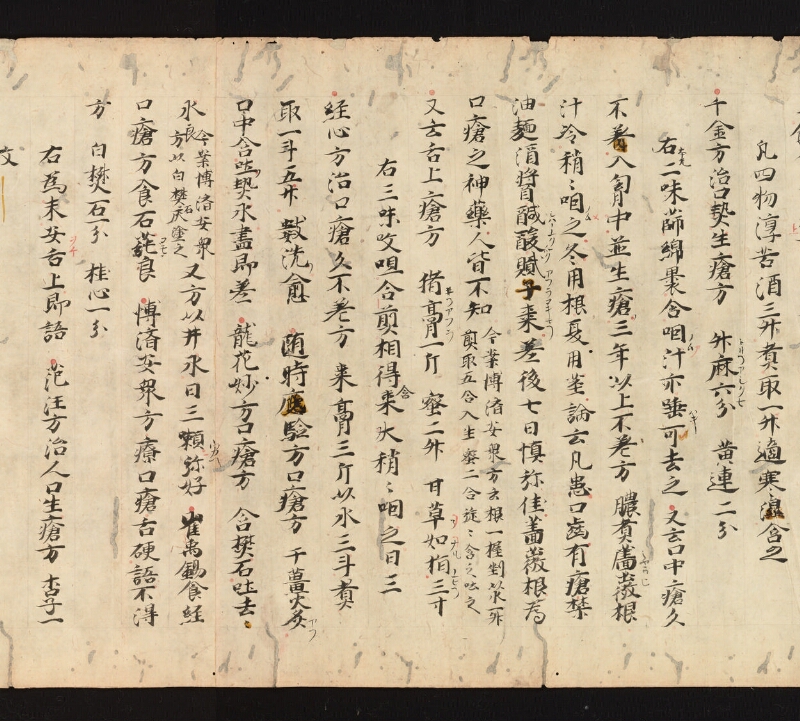 凡四物淳苦酒三升煮取一升適寒温含之
千金方治口熱生瘡方 升麻六分 黄連二分
右二味篩綿裹含咽汁亦唾可去之 又云口中瘡久
不差入胸中並生瘡三年以上不差方 膿煮薔薇根
汁冷稍〻咽之冬用根夏用茎 論云凡患口歯有瘡禁
油麺酒醤醎酸膩子棗差後七日慎弥佳薔薇根為
口瘡之神薬人皆不知 今案博済安衆方云根一握剉以水一升
煎取五合入生蜜二合旋〻含之吐之
又云舌上瘡方 猪膏一斤 蜜二升 甘草如指三寸
右三味㕮咀合煎相得含棗大稍〻咽之日三
経心方治口瘡久不差方 棗膏三斤以水三斗煮
取一斗五升 数洗愈 随時応験方口瘡方 干薑火炙
口中含吐熱水盡即差 龍花妙方口瘡方 含礬石吐去
水良 今案博済安衆
方以白礬石灰塗之 又方以井水日三頼弥好 崔禹錫食経
口瘡方食石蓴良 博済安衆方療口瘡舌硬語不得
方 白礬石分 桂心一分
右為末安舌上即語 范汪方治人口生瘡方 杏子一